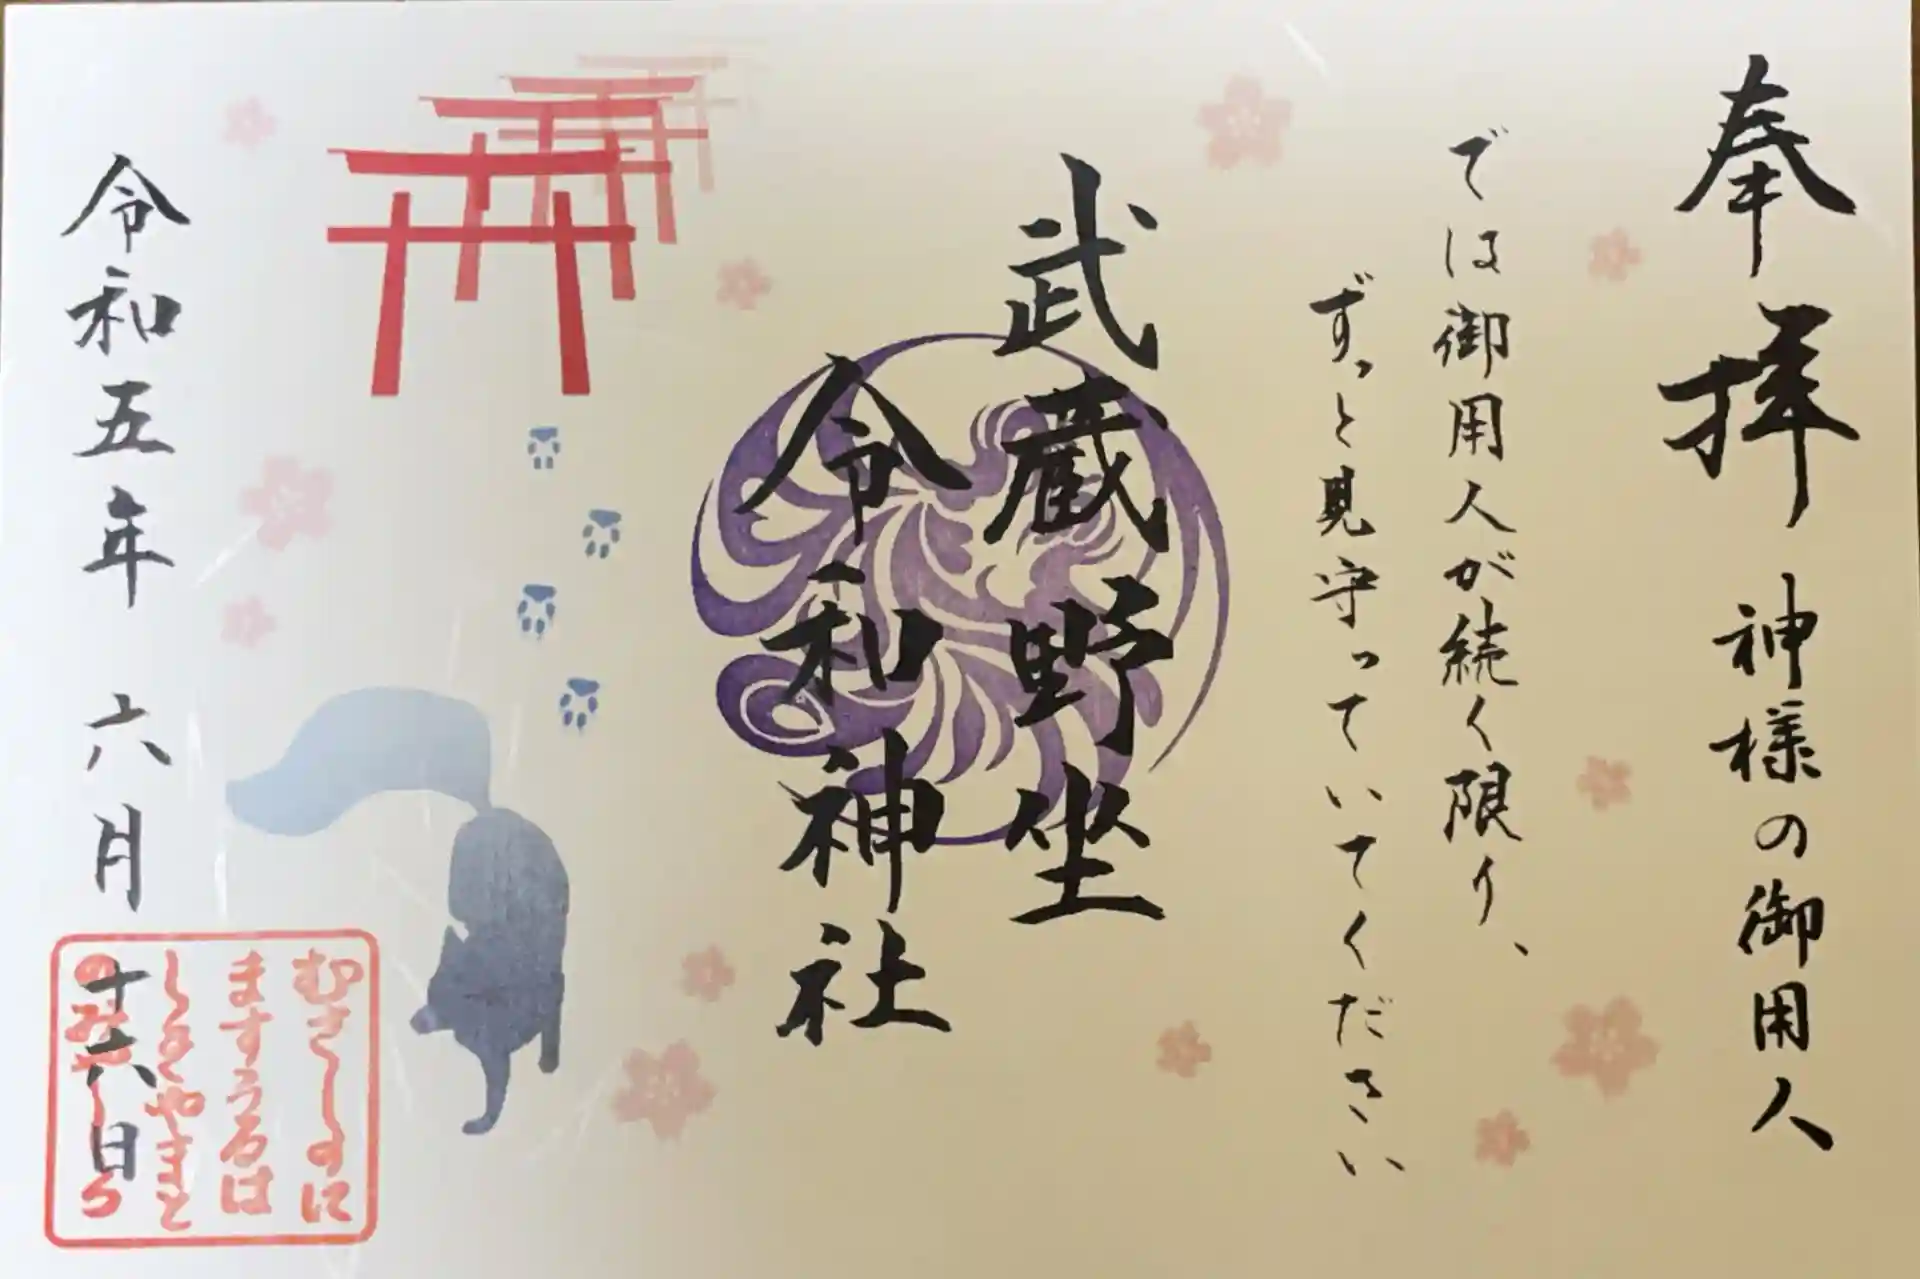 奉拝 神様の御用人
では御用人が続く限り、
ずっと見守っていてください
武蔵野坐
令和神社
令和五年 六月 十六日
むさしのに
ますうるは
しきやまと
のみやしろ